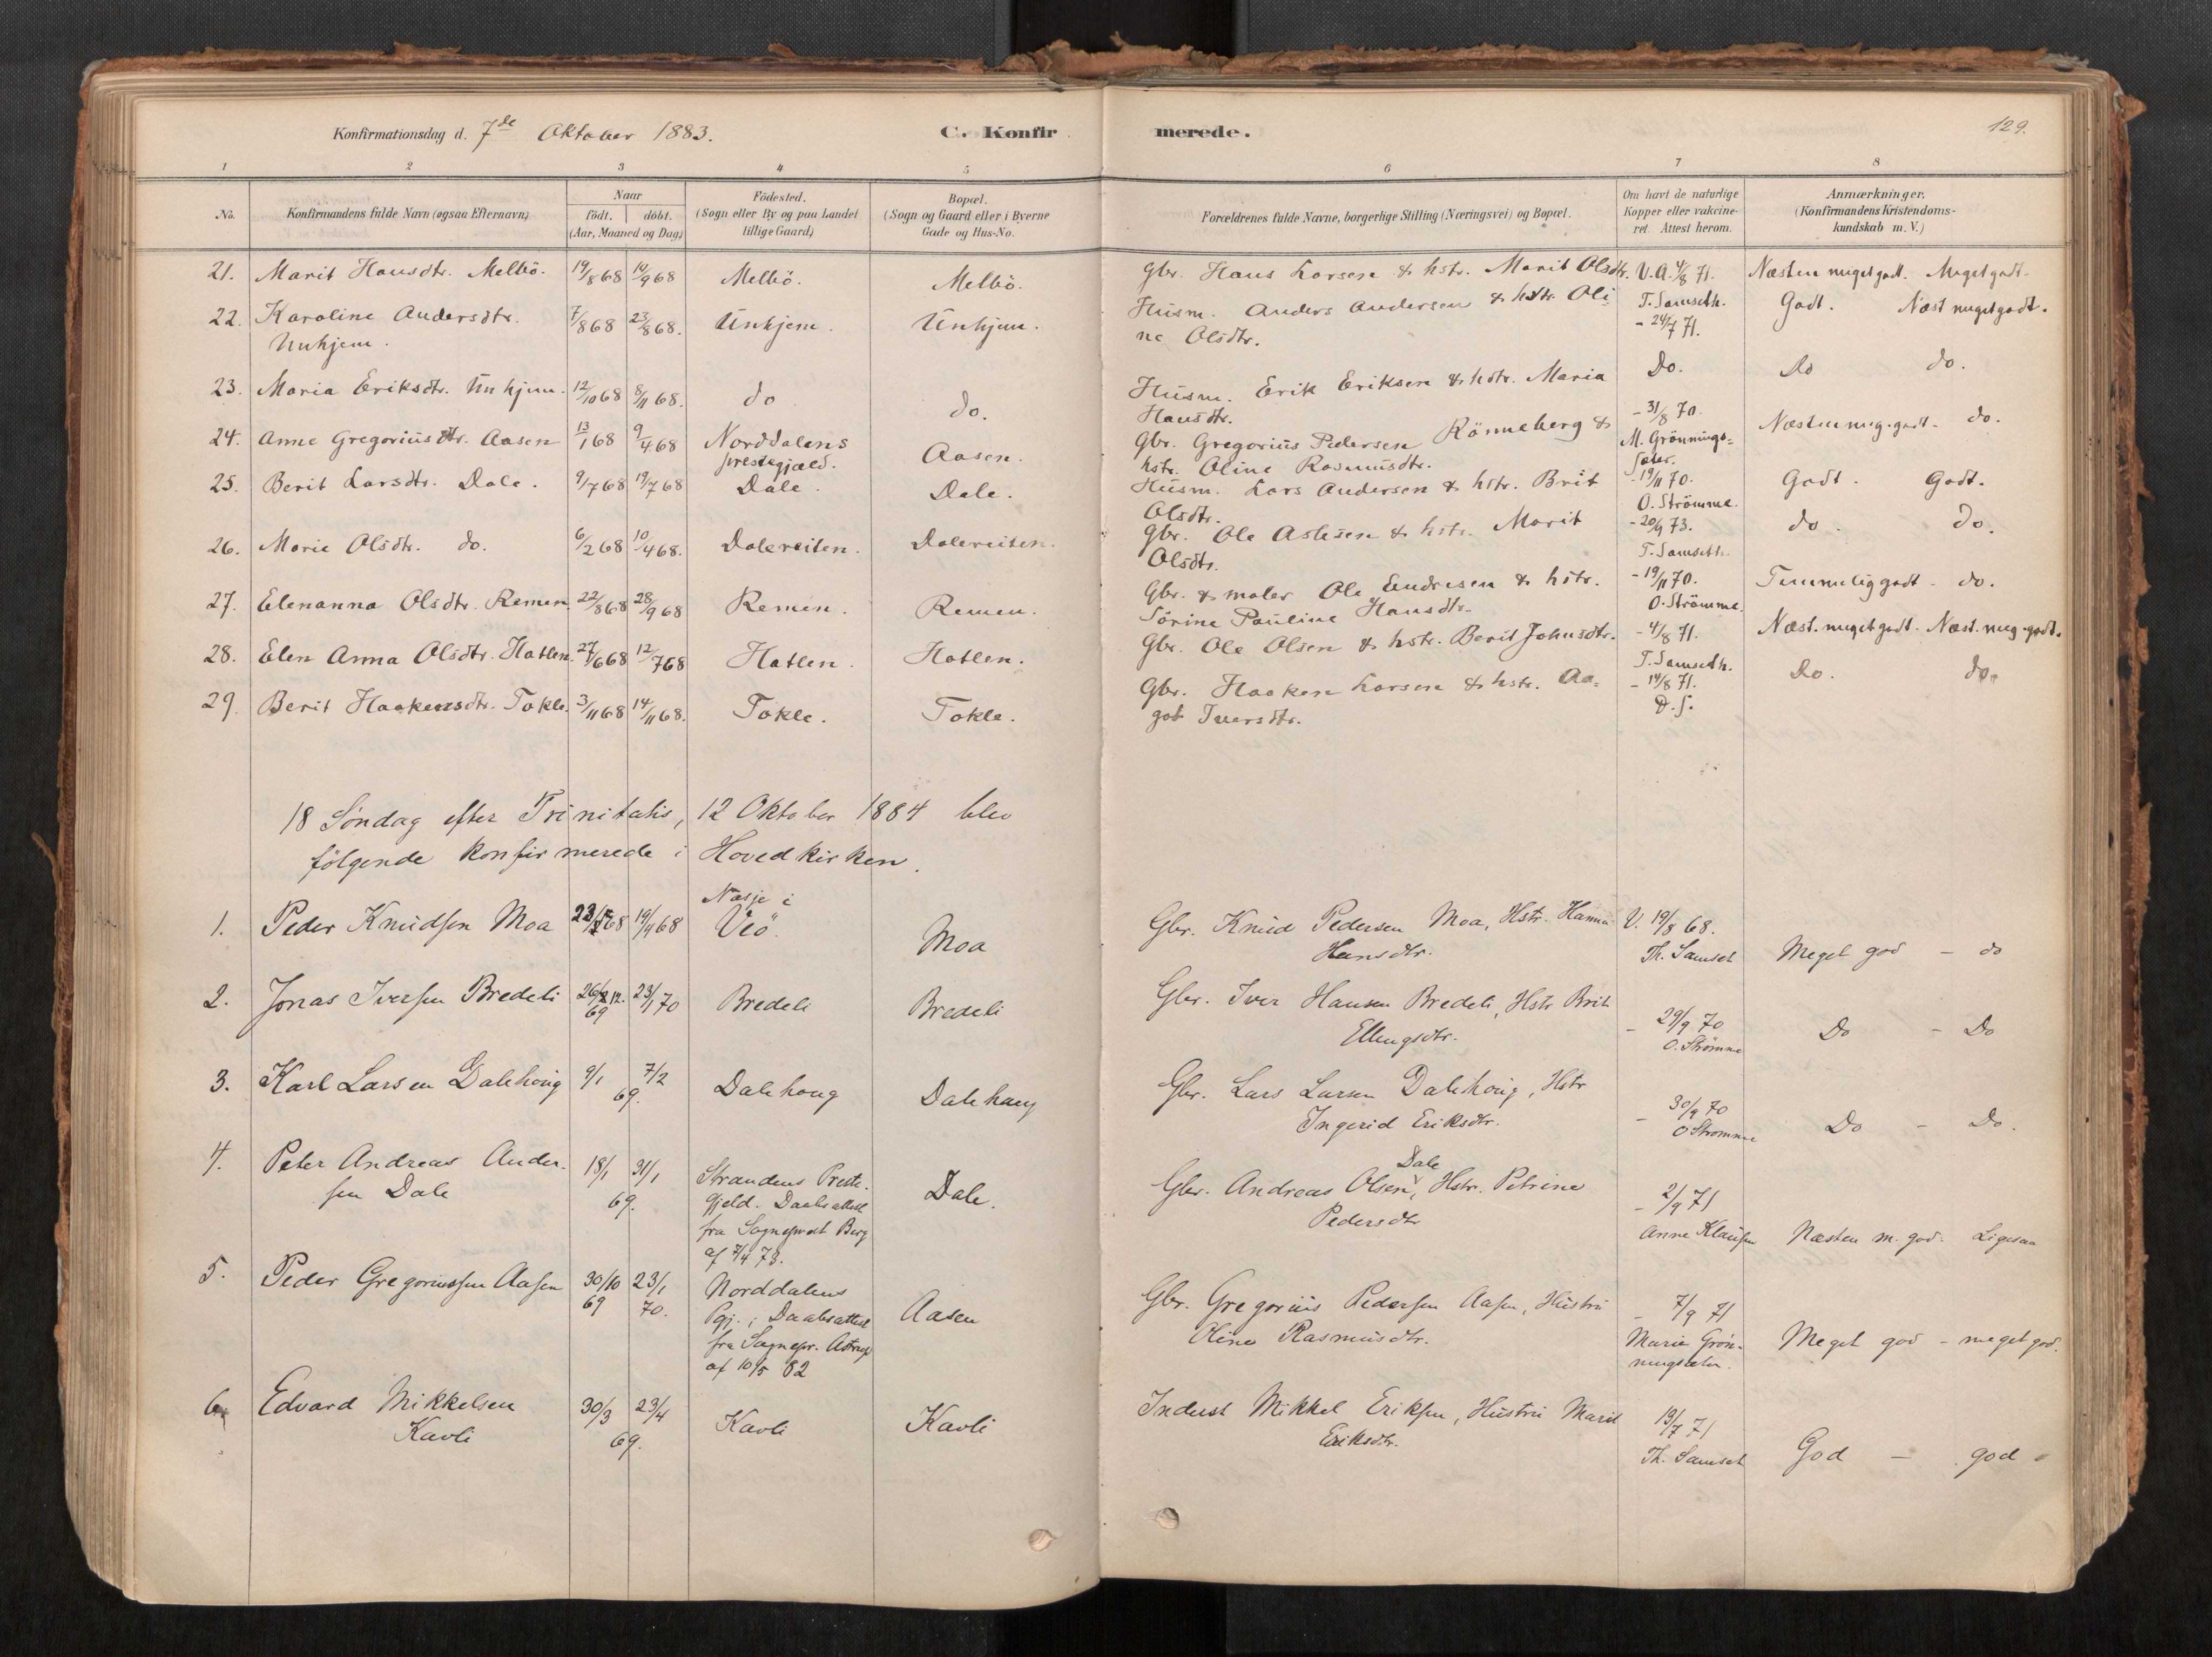 Konfirmationsdag d. 7de Oktober 1883. C. Konfirmerede. 129.
1 2 3 4 5 6 7 8
No. Konfirmandens fulde Navn (ogsaa Efternavn) Naar födt. döbt. (Aar, Maaned og Dag) Födested. (Sogn eller By og paa Landet tillige Gaard) Bopæl. (Sogn og Gaard eller i Byerne Gade og Hus-No. Forældrenes fulde Navne, borgerlige Stilling (Næringsvei) og Bopæl. Om havt de naturlige Kopper eller vakcineret. Attest herom. Anmærkninger. (Konfirmandens Kristendomskundskab m. V.)
21. Marit Hansdtr. Melbö. 19/8 68 14/9 68 Melbö. Melbö. Gbr. Hans Larsen & hstr. Marit Olsdtr. V.A. 4/8 71. Næsten megetgodt. Megetgodt.
T. Samseth.
22. Karoline Andersdtr. 7/8 68 23/8 68. Unhjem. Unhjem. Husm. Anders Andersen & hstr. Oli - 24/7 71. Godt. Næst megetgodt.
Unhjem. ne Olsdtr.
23. Maria Eriksdtr. Unhjem. 12/10 68 8/11 68. do do. Husm. Erik Eriksen & hstr. Maria Do. Do do.
Hansdtr.
24. Anne Gregoriusdtr. Aasen 13/1 68 9/4 68 Norddalens Aasen. Gbr. Gregorius Pedersen Rönneberg & - 31/8 70. Næsten meg. godt. do.
prestegjæld. hstr. Oline Rasmusdtr. M. Grönnings=
sæter.
25. Berit Larsdtr. Dale. 9/7 68 19/7 68 Dale. Dale. Husm. Lars Andersen & hstr. Brit - 19/11 70. Godt. Godt.
Olsdtr. O. Strömme.
26. Marie Olsdtr. do. 6/2 68 10/4 68. Dalereiten. Dalereiten. Gbr. Ole Aslesen & hstr. Marit - 20/9 73. do. do.
Olsdtr. T. Samseth.
27. Elenanna Olsdtr. Remen 22/8 68 28/9 68 Remen. Remen. Gbr. & maler Ole Endresen & hstr. - 19/11 70. Temmelig godt - do.
Sörine Pauline Hansdtr. O. Strömme.
28. Elen Anna Olsdtr. Hatlen. 27/6 68 12/7 68 Hatlen. Hatlen. Gbr. Ole Olsen & hstr. Berit Johnsdtr. - 4/8 71. Næst. megetgodt. Næst. meg. godt.
T. Samseth.
29. Berit Haakensdtr. Tokle. 3/11 68 14/11 68. Tokle. Tokle. Gbr. Haaken Larsen & hstr. Aa= - 14/8 71. Do. do.
got Iversdtr. D.s.
18 Söndag efter Trinitatis, 12 Oktober 1884 blev
fölgende konfirmerede i Hovedkirken.
1. Peder Knudsen Moa 68 19/4 68 Næsje i Veö. Moa Gbr. Knud Pedersen Moa, Hstr. Hanna V. 19/8 68. Meget god - do
Hansdtr. Th. Samset
2. Jonas Iversen Bredeli 26/12. 69 23/1 70 Bredeli Bredeli Gbr. Iver Hansen Bredeli, Hstr Brit - 29/9 70 Do - Do
Ellingsdtr. O. Strömme
3. Karl Larsen Dalehoug 9/1 7/2 69. Dalehoug Dalehoug Gbr. Lars Larsen Dalehoug, Hstr - 30/9 70 Do - Do.
Ingerid Eriksdtr. O Stromme
4. Peter Andreas Ander- 18/1 31/1 69. Strandens Preste- Dale. Gbr. Andreas Olsen Dale, Hstr. Petrine - 2/9 71 Næsten m. god. Ligesaa
sen Dale gjeld. Daabsattest Pedersdtr Anne Klausen
fra Sognepræst Berg
af 7/4 73.
5. Peder Gregoriussen Aasen 30/10 69 23/1 70. Norddalens Aasen Gbr. Gregorius Pedersen Aasen, Hustru - 7/9 71 Meget god - meget god.
Pgj.; Daabsattest Oline Rasmusdtr. Marie Grön-
fra Sognepr. Astrup ningsæter.
af 10/5 82
6. Edvard Mikkelsen 30/3 23/4 69. Kavli Kavli Inderst Mikkel Eriksen, Hustru Marit 19/7 71 God - god
Kavli Eriksdtr. Th. Samset